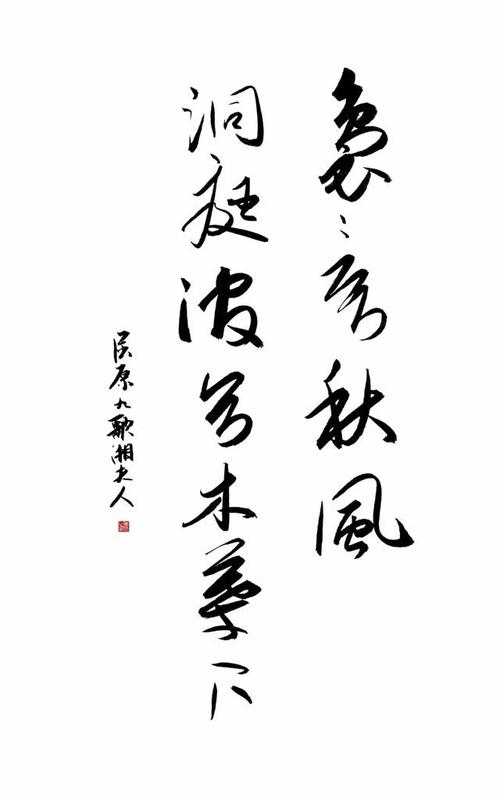 裊〻兮秋風
洞庭波兮木葉下
屈原九歌湘夫人